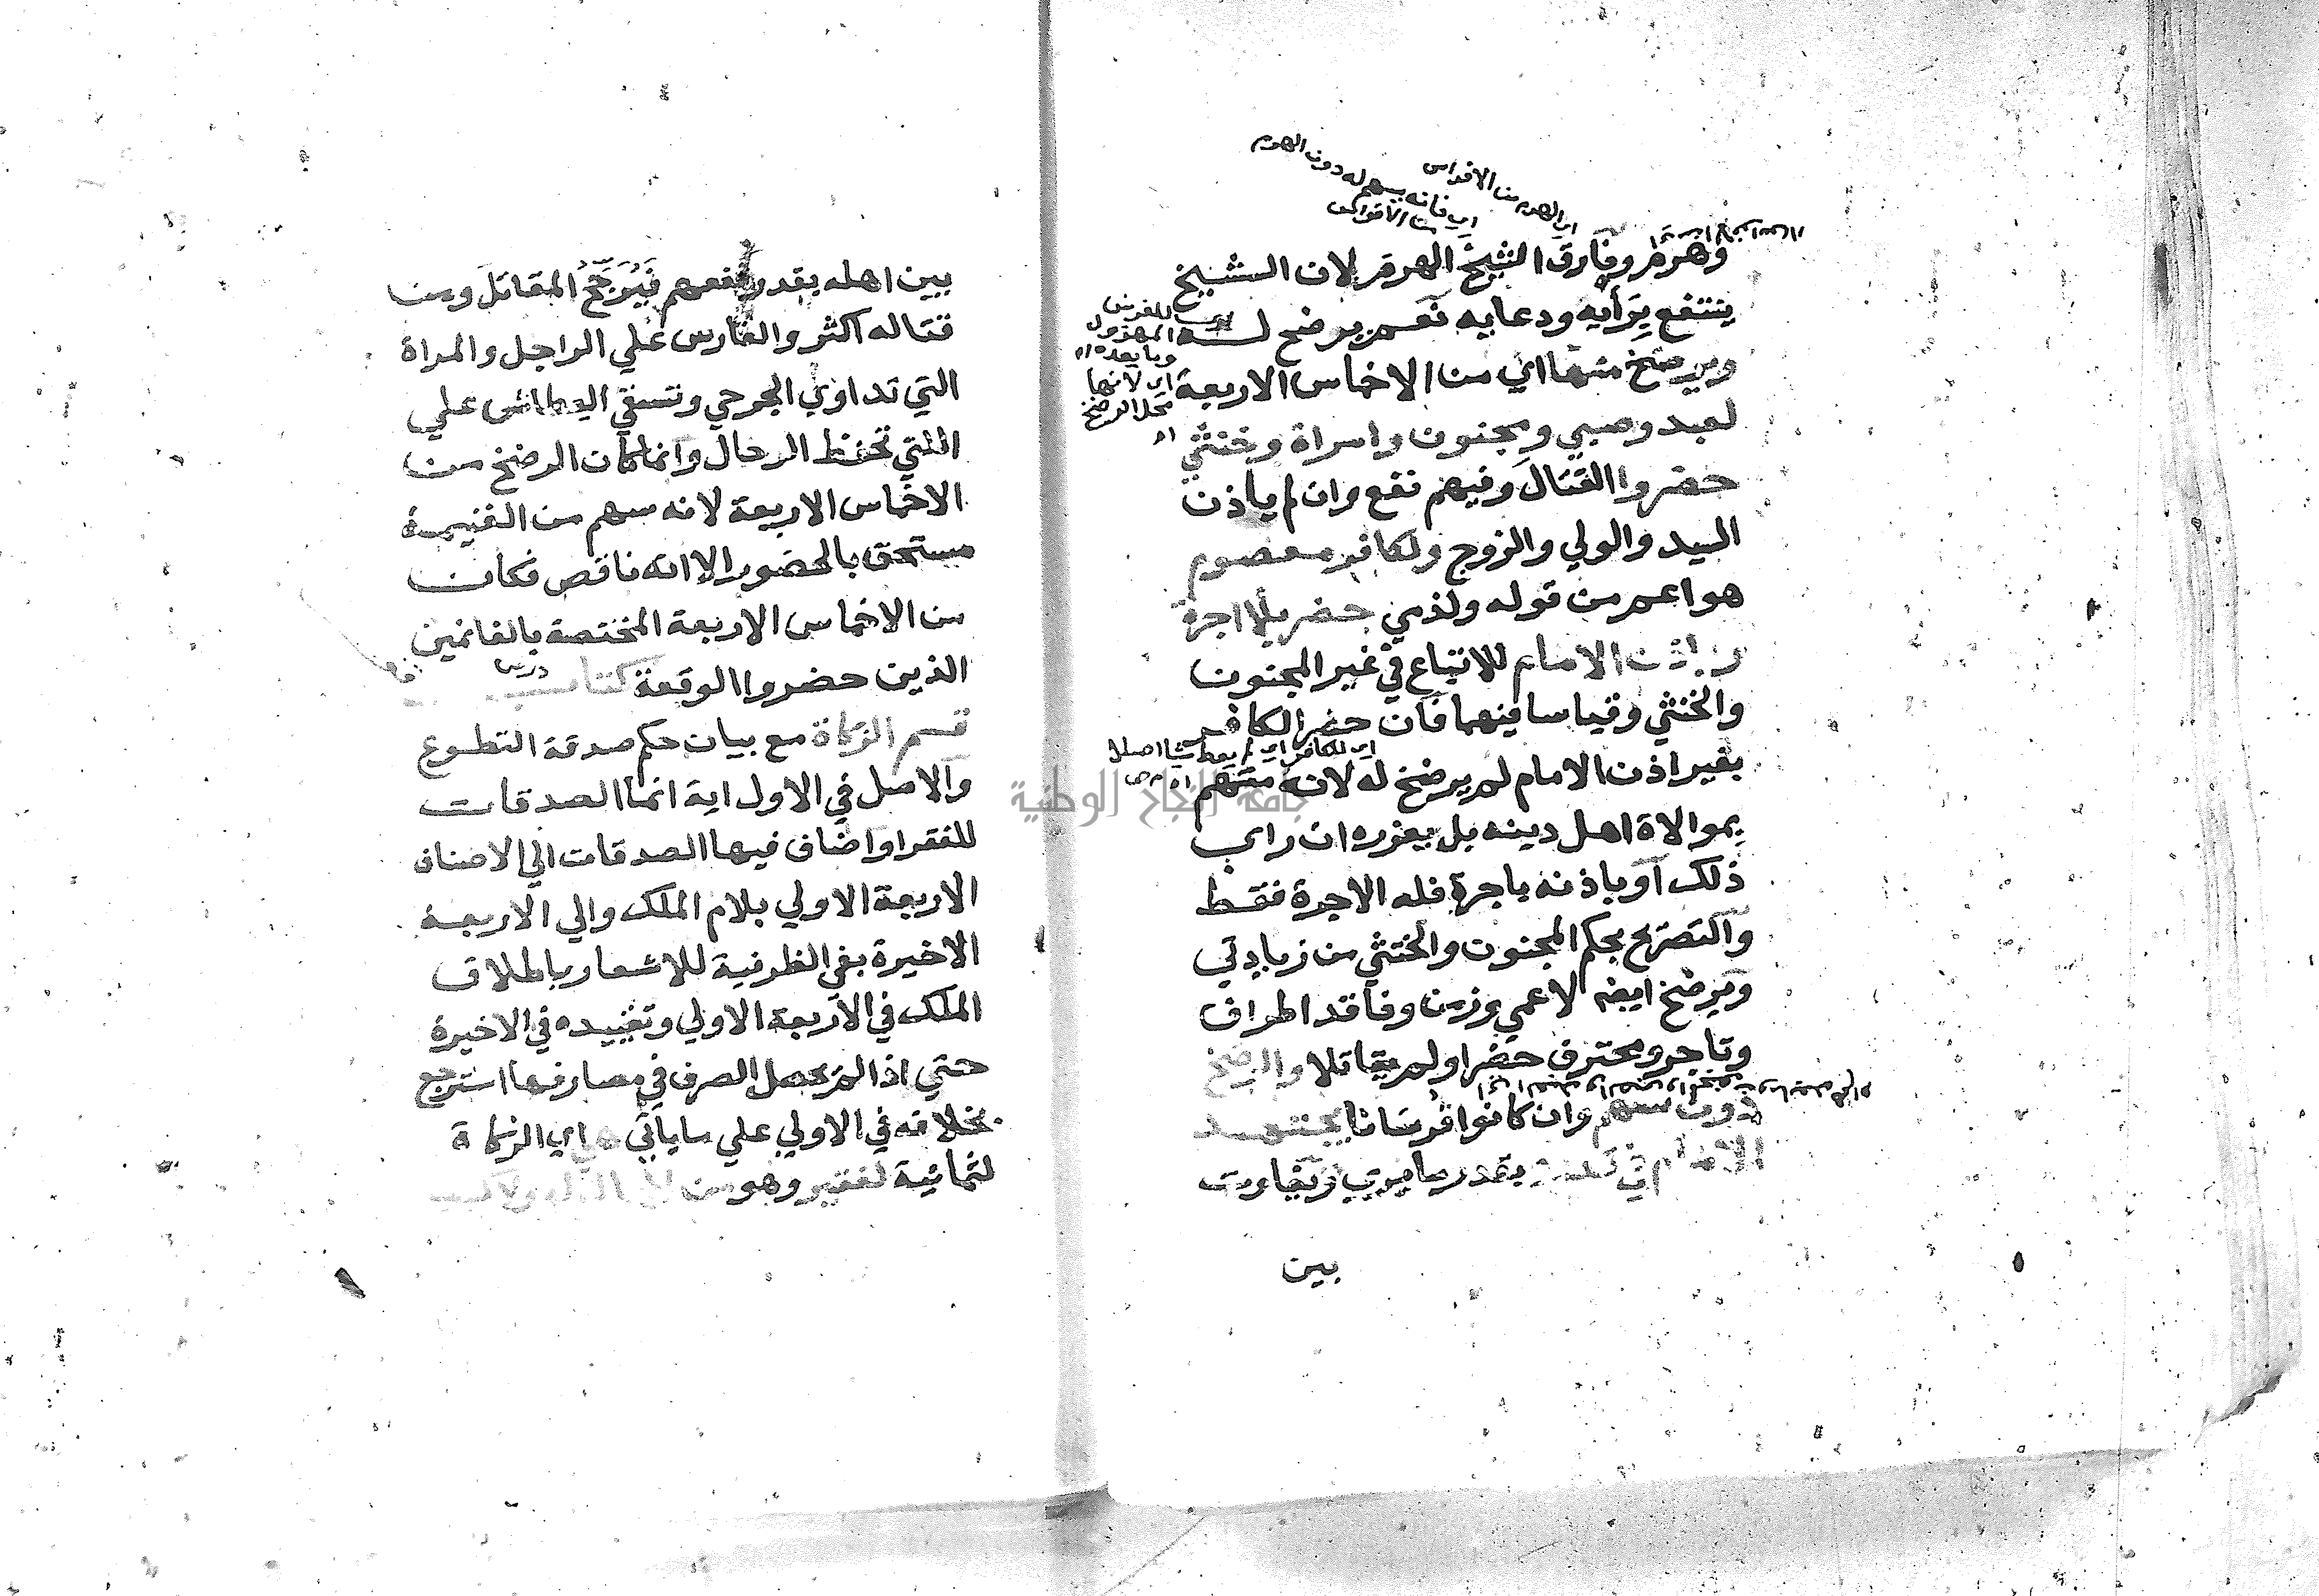 اي الهرم من الافراس
اي فانه يسهم له دون الهرم
من الافراس
وهرم وفارق الشيخ الهرم لان الشيخ
ينتفع برايه ودعايه نعم يرضخ له
للفرس
المهزول
وما بعده اه
ويرضخ منها اي من الاخماس الاربعة
اي لانها
محل الرضخ
اه
لعبد وصبي ومجنون وامراة وخنثي
حضروا القتال وفيهم نفع وان لم ياذن
السيد والولي والزوج ولكافر معصوم
هو اعم من قوله ولذمي حضر بلا اجرة
وباذن الامام للاتباع في غير المجنون
والخنثي وقياسا فيهما فان حضر الكافر
بغير اذن الامام لم يرضخ له لانه متهم
اي للكافر اي لم يعط شيا اصلا
بموالاة اهل دينه بل يعزره ان راي
ذلك او باذنه باجرة فله الاجرة فقط
والتصريح بحكم المجنون والخنثي من زيادتي
ويرضخ ايضا لاعمي وزمن وفاقد اطراف
وتاجر ومحترف حضرا ولم يقاتلا والرضخ
دون سهم وان كانوا فرسانا يجتهد
الامام في قدره بقدر ما يري ويفاوت
بين
جامعة النجاح الوطنية
بين اهله بقدر نفعهم فيرجح المقاتل ومن
قتاله اكثر والفارس علي الراجل والمراة
التي تداوي الجرحي وتسقي العطاش علي
اللتي تحفظ الرحال وانما كان الرضخ من
الاخماس الاربعة لانه سهم من الغنيمة
مستحق بالحضور الا انه ناقص فكان
من الاخماس الاربعة المختصة بالغانمين
الذين حضروا الوقعة كتاب
درس
قسم الزكاة مع بيان حكم صدقة التطوع
والاصل في الاول اية انما الصدقات
للفقرا واضاف فيها الصدقات الي الاصناف
الاربعة الاولي بلام الملك والي الاربعة
الاخيرة بفي الظرفية للاشعار باطلاق
الملك في الاربعة الاولي وتقييده في الاخيرة
حتي اذا لم يحصل الصرف في مصارفها استرجع
بخلافه في الاولي علي ما ياتي هي اي الزكاة
لثمانية لفقير وهو من لا مال له ولا كسب